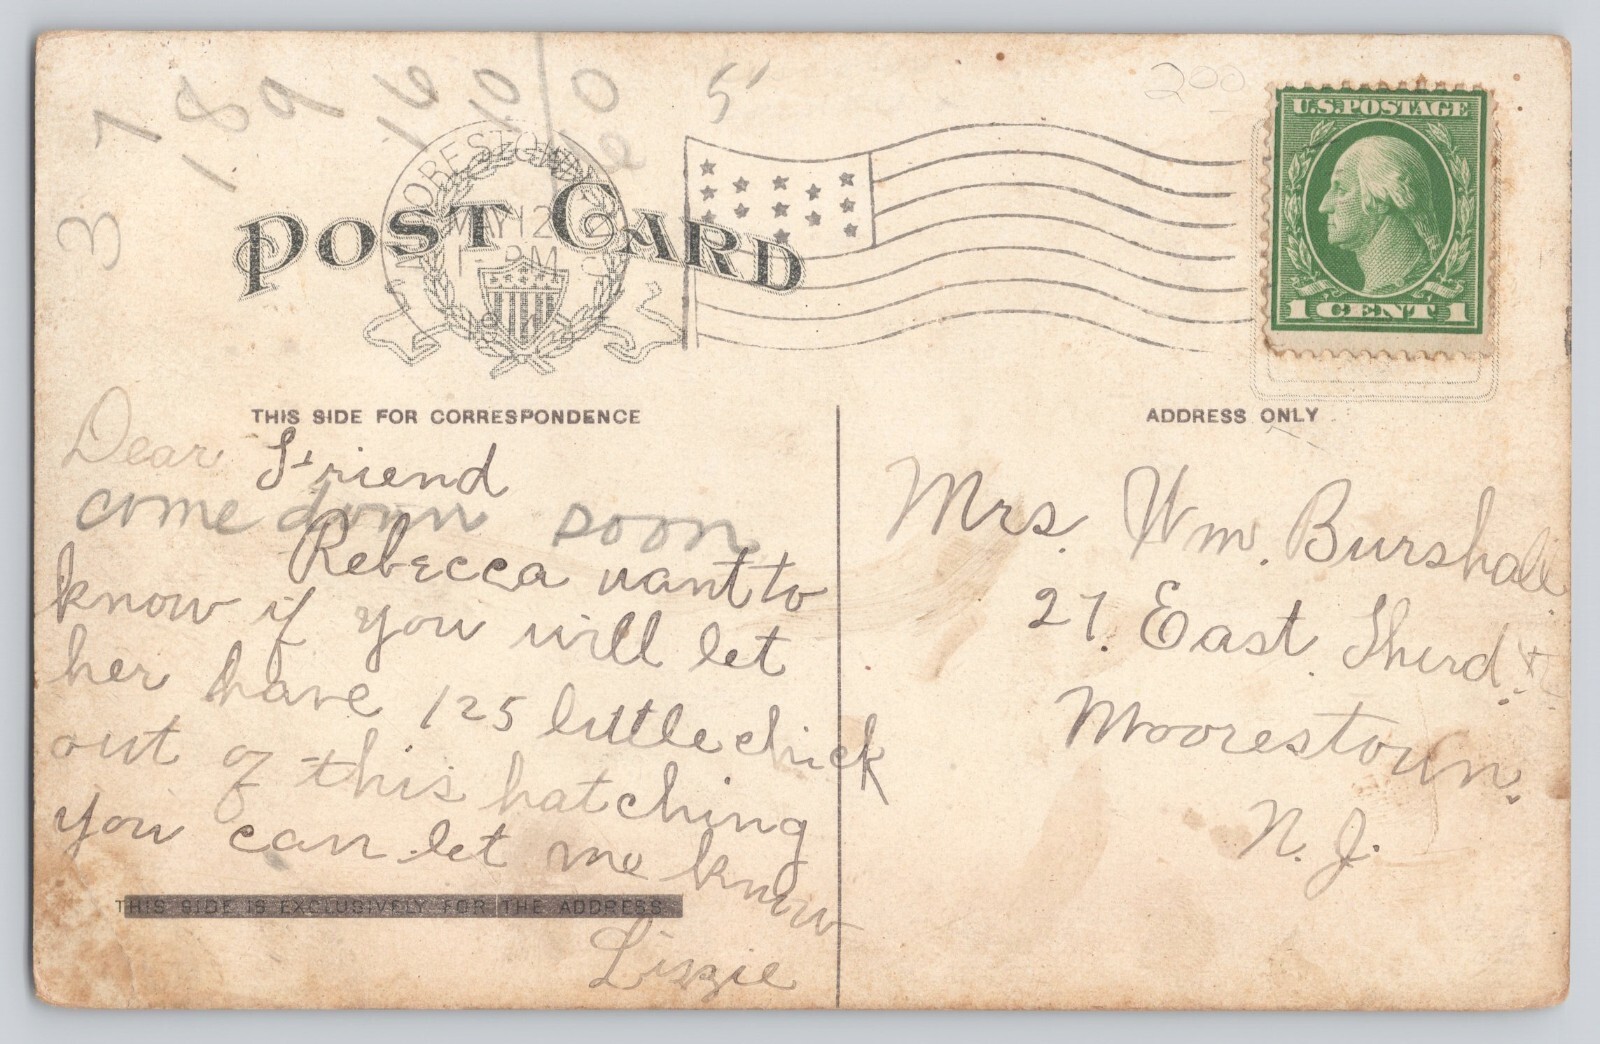 3 7 189 16 10 60 5
200
U.S. POSTAGE
1 CENT 1
MOORESTOWN
MAY 12
1 - PM
POST CARD
THIS SIDE FOR CORRESPONDENCE
ADDRESS ONLY
Dear Friend
come down soon
Rebecca vant to
know if you will let
her have 125 little chick
out of this hatching
you can let me know
THIS SIDE IS EXCLUSIVELY FOR THE ADDRESS
Lizzie
Mrs. Wm. Burshall
27. East Third St
Moorestown.
N. J.